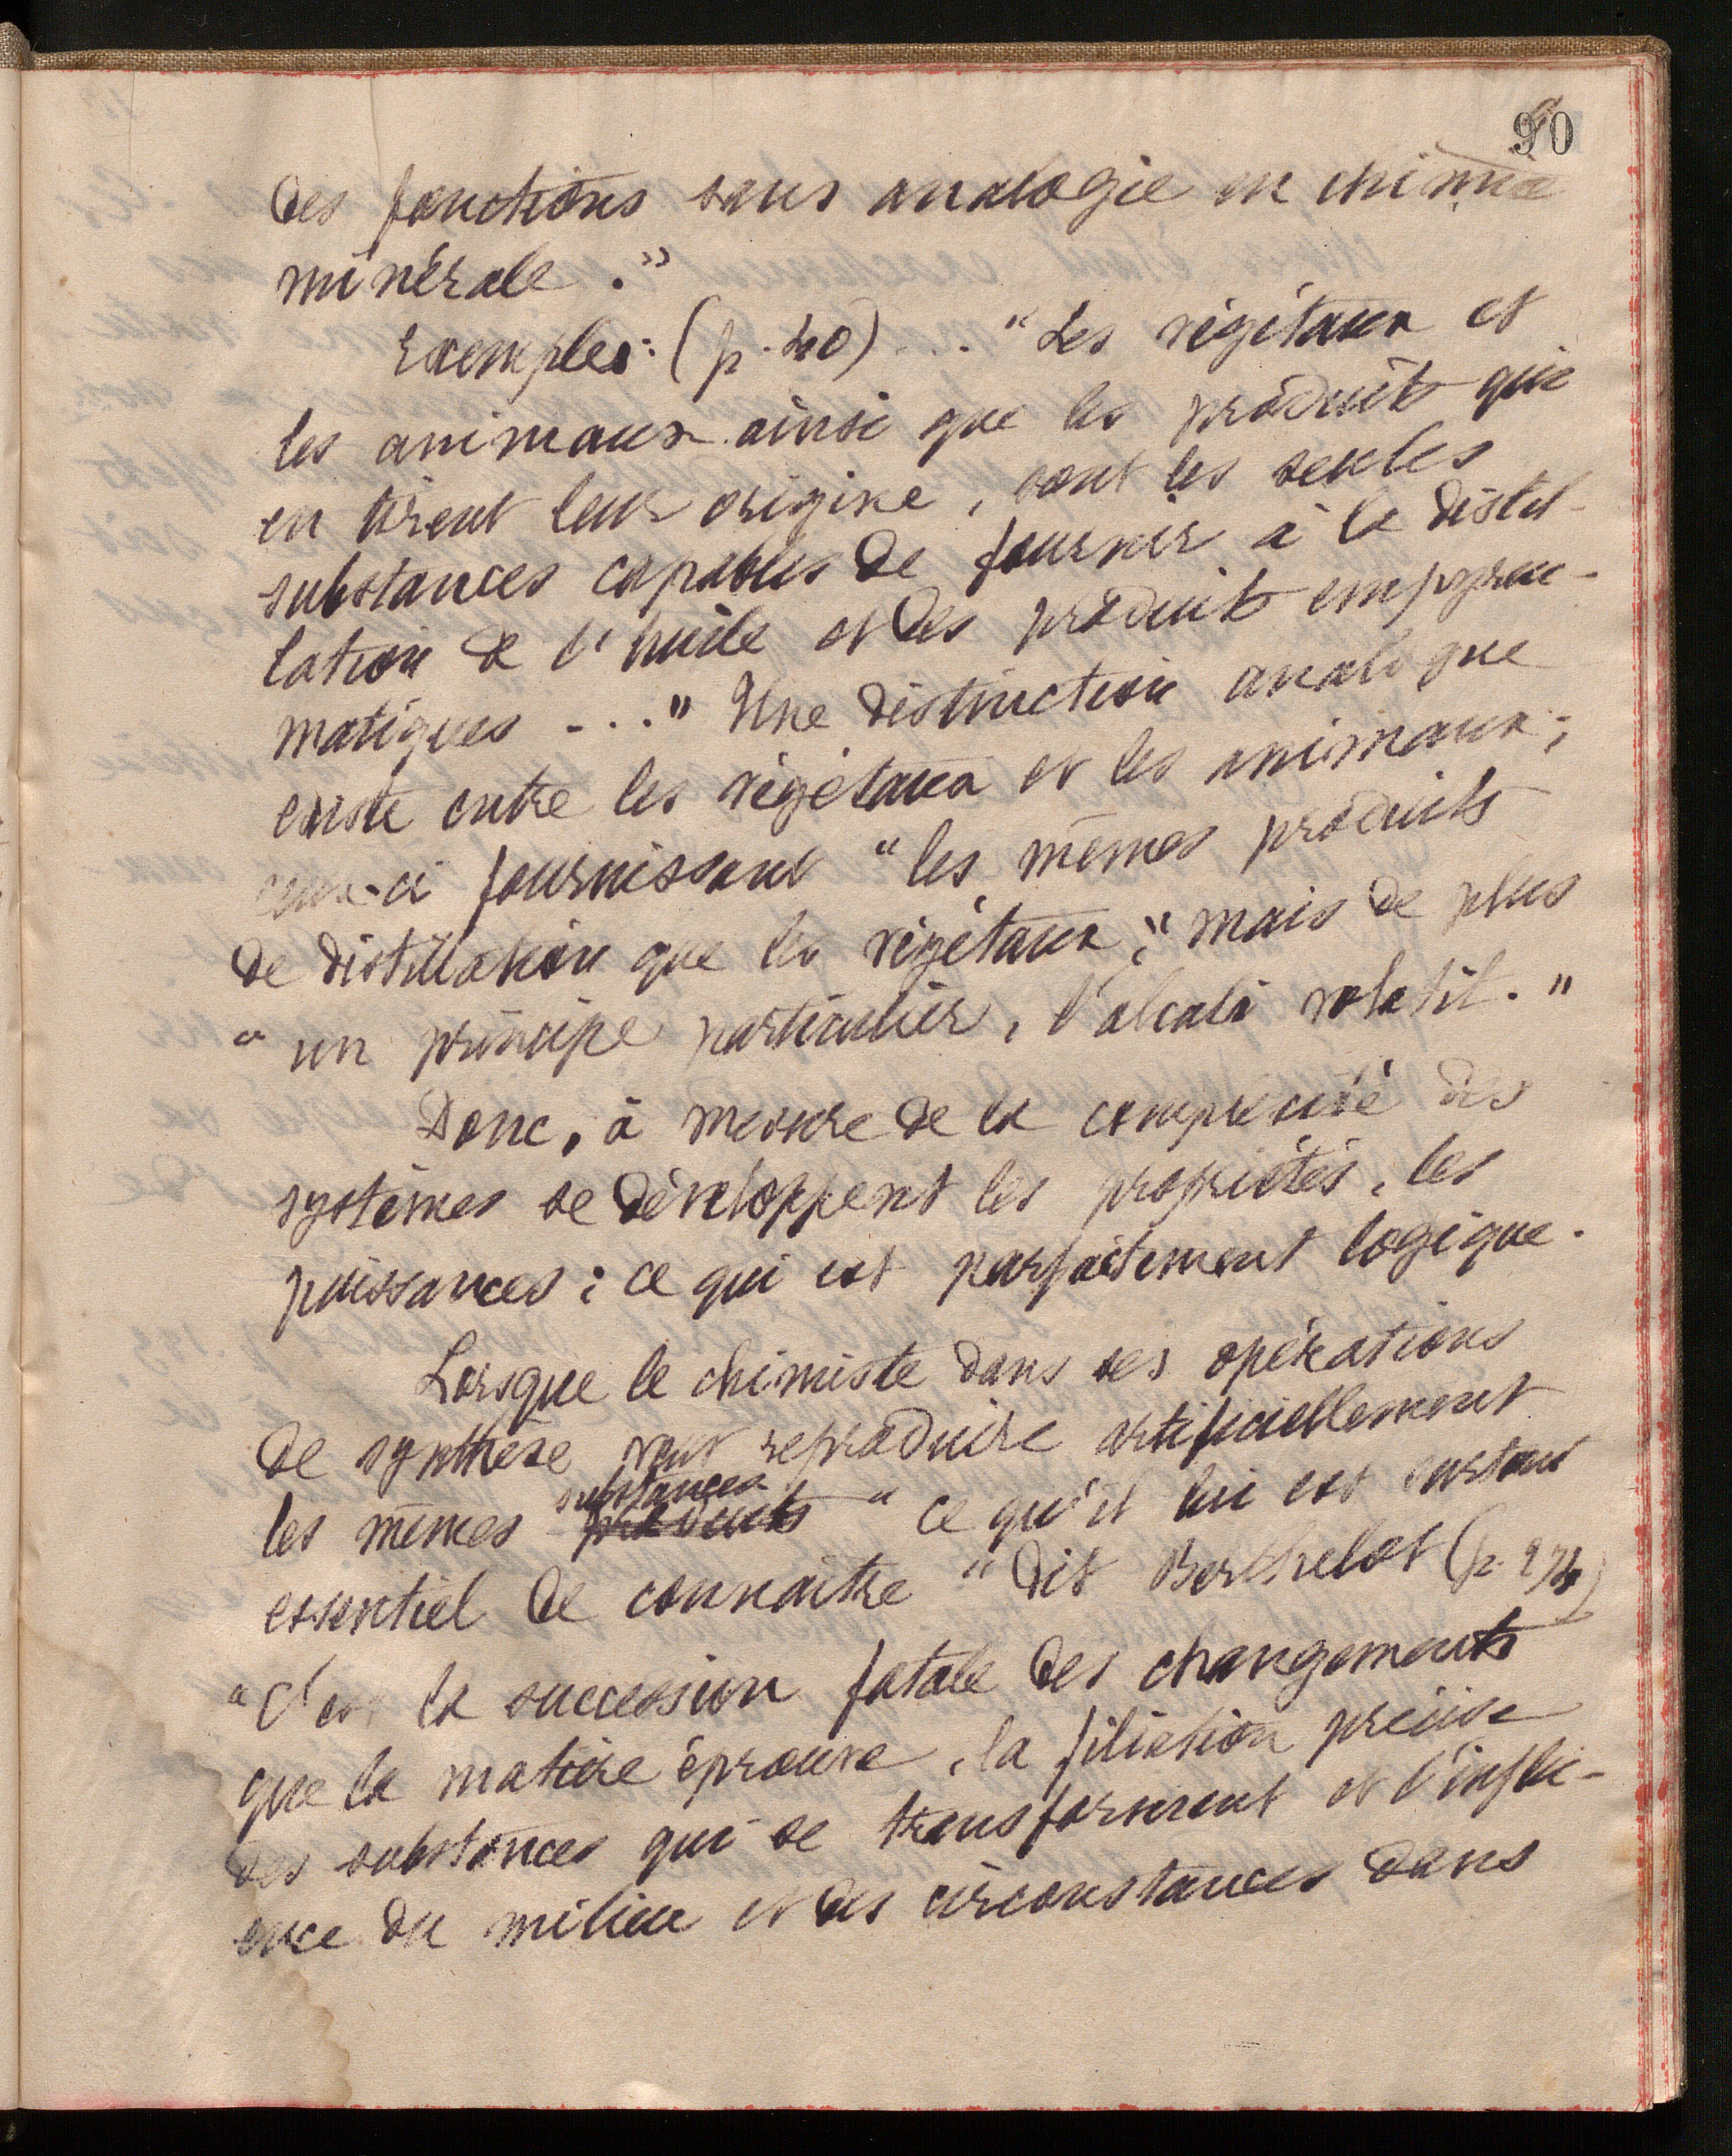 90
des fonctions sans analogie en chimie
minérale."
Exemples: (p. 40) ... "Les végétaux et
les animaux ainsi que les produits qui
en tirent leur origine, sont les seules
substances capables de fournir à la distil-
lation de l'huile et des produits empyreu-
matiques ..." Une distinction analogue
existe entre les végétaux et les animaux;
ceux-ci fournissant "les mêmes produits
de distillation que les végétaux;" mais de plus
"un principe particulier, l'alcali volatil."
Donc, à mesure de la complexité des
systèmes se développent les propriétés, les
puissances; ce qui est parfaitement logique.
Lorsque le chimiste dans ses opérations
de synthèse veut reproduire artificiellement
substances
les mêmes produits "ce qu'il lui est surtout
essentiel de connaître" dit Berthelot (p. 274)
"C'est la succession fatale des changements
que la matière éprouve, la filiation précise
des substances qui se transforment et l'influ-
ence du milieu et des circonstances dans